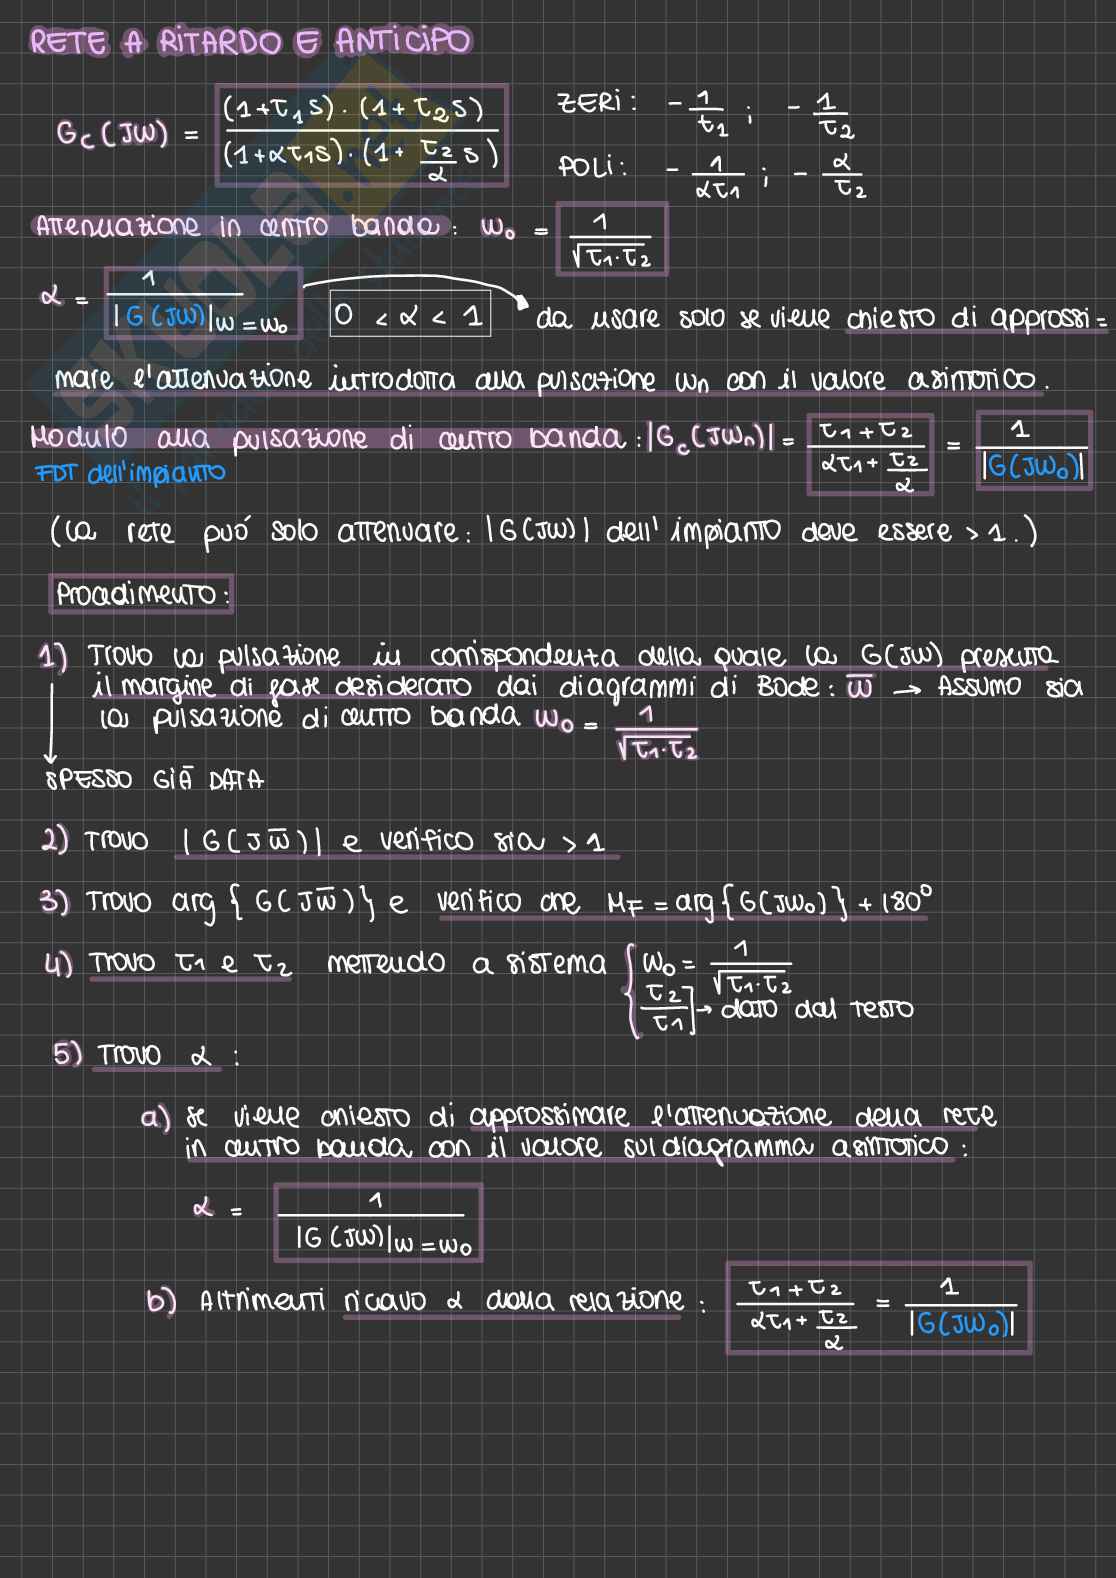 RETE A RITARDO E ANTICIPO
Gc(Jω) = (1+τ1s)·(1+τ2s) / (1+ατ1s)·(1+ τ2/α s)
ZERI: -1/t1 ; -1/τ2
POLI: -1/ατ1 ; -α/τ2
Attenuazione in centro banda: ω0 = 1/√τ1·τ2
α = 1/|G(Jω)|ω=ω0 0 < α < 1 da usare solo se viene chiesto di approssi=
mare l'attenuazione introdotta alla pulsazione ωn con il valore asintotico.
Modulo alla pulsazione di centro banda: |Gc(Jωn)| = τ1+τ2 / ατ1+ τ2/α = 1/|G(Jω0)|
FDT dell'impianto
(la rete può solo attenuare: |G(Jω)| dell'impianto deve essere > 1.)
Procedimento:
1) Trovo la pulsazione in corrispondenza della quale la G(Jω) presenta
il margine di fase desiderato dai diagrammi di Bode: ω̅ → Assumo sia
la pulsazione di centro banda ω0 = 1/√τ1·τ2
SPESSO GIÀ DATA
2) Trovo |G(Jω̅)| e verifico sia > 1
3) Trovo arg{G(Jω̅)} e verifico che MF = arg{G(Jω0)} + 180°
4) Trovo τ1 e τ2 mettendo a sistema { ω0 = 1/√τ1·τ2
τ2/τ1 → dato dal testo
5) Trovo α :
a) se viene chiesto di approssimare l'attenuazione della rete
in centro banda con il valore sul diagramma asintotico:
α = 1/|G(Jω)|ω=ω0
b) Altrimenti ricavo α dalla relazione: τ1+τ2 / ατ1+ τ2/α = 1/|G(Jω0)|
SKUOLA.net